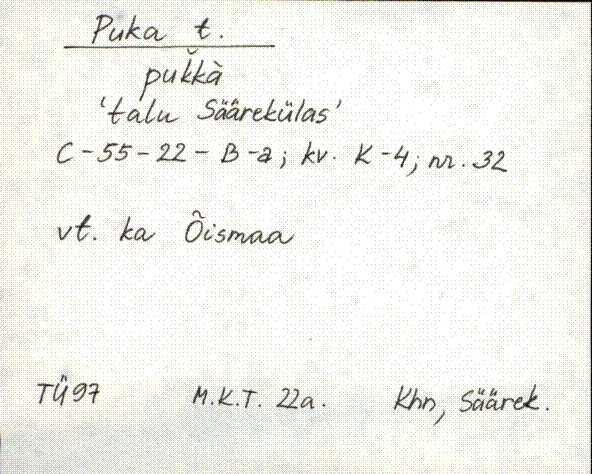 Puka t.
puk̆kà
'talu Säärekülas'
C-55-22-B-a; kv. K-4; nr. 32
vt. ka Õismaa
TÜ97 M.K.T. 22a. Khn, Säärek.